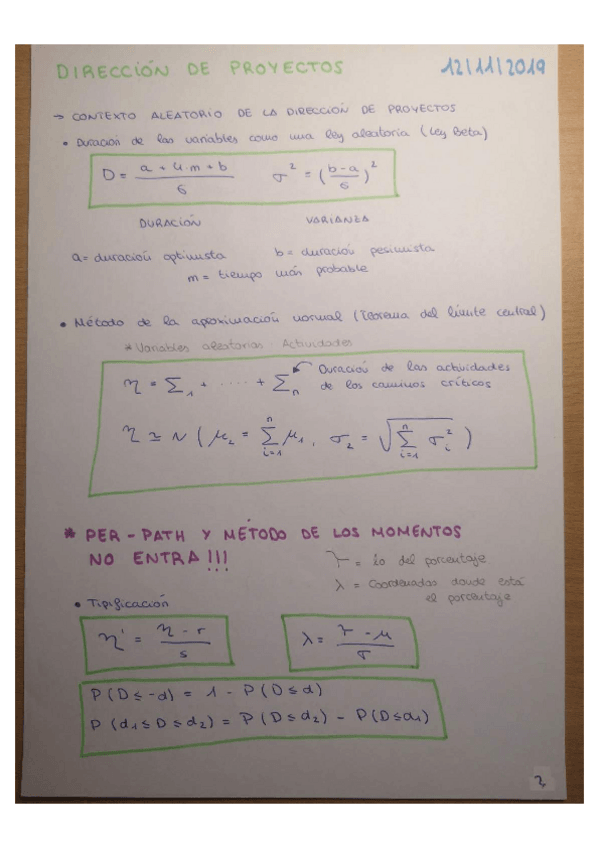 DIRECCIÓN DE PROYECTOS 12/11/2019
→ CONTEXTO ALEATORIO DE LA DIRECCIÓN DE PROYECTOS
• Duración de las variables como una ley aleatoria (Ley Beta)
D = (a + 4·m + b)/6 σ² = ((b-a)/6)²
DURACIÓN VARIANZA
a = duración optimista b = duración pesimista
m = tiempo más probable
• Método de la aproximación normal (Teorema del límite central)
* Variables aleatorias Actividades
η = Σ₁ + ····· + Σₙ Duración de las actividades
de los caminos críticos
η ≃ N (μ₂ = Σᵢ₌₁ⁿ μ₁, σ₂ = √(Σᵢ₌₁ⁿ σᵢ²))
* PER - PATH Y MÉTODO DE LOS MOMENTOS
NO ENTRA!!!
= lo del porcentaje
λ = Coordenadas donde está
el porcentaje
• Tipificación
η' = (η - r)/s λ = ( - μ)/σ
P(D ≤ -d) = 1 - P(D ≤ d)
P(d₁ ≤ D ≤ d₂) = P(D ≤ d₂) - P(D ≤ d₁)